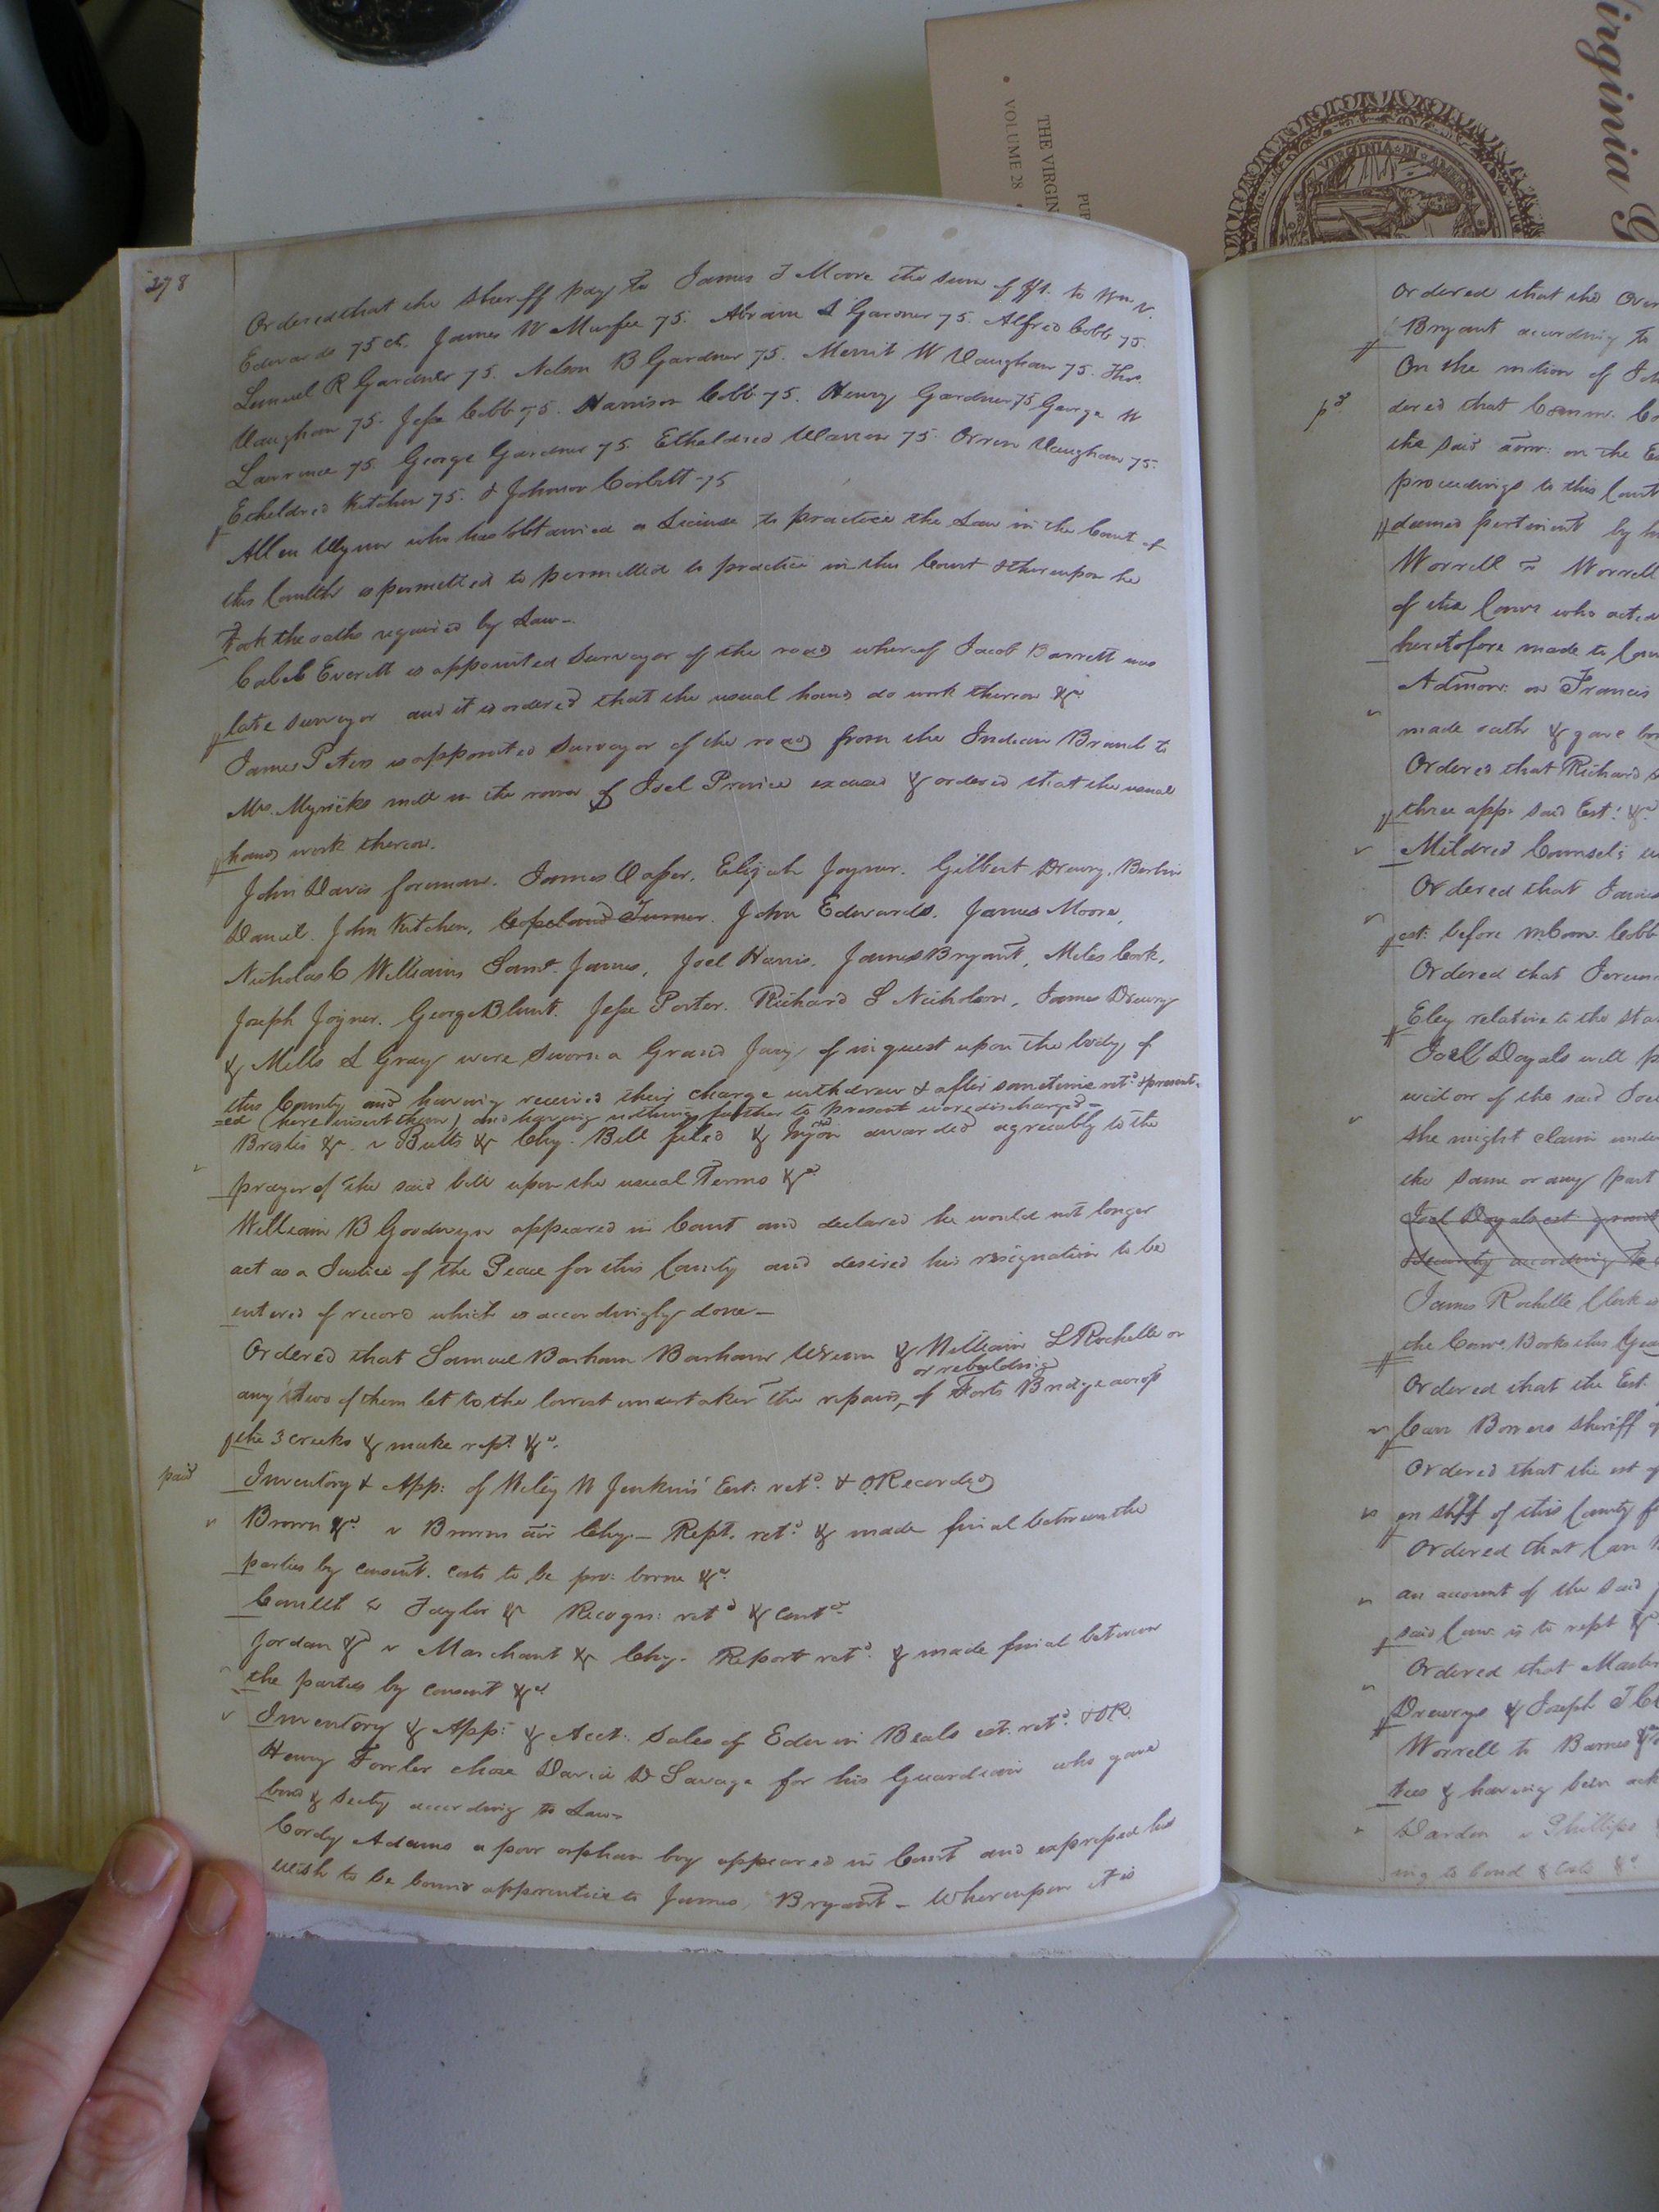 Virginia G
THE VIRGIN
VOLUME 28
PUB
VIRGINIA IN
278
Ordered that the Sheriff pay to James T Moore the sum of $1. to Wm N.
Edwards 75 ct. James W Murfee 75. Abram S Gardner 75. Alfred Cobb 75.
Lemuel R Gardner 75. Nelson B Gardner 75. Merrit W Vaughan 75. Thos.
Vaughan 75. Jesse Cobb 75. Harrison Cobb 75. Henry Gardner 75 George W
Lawrence 75. George Gardner 75. Etheldred Warren 75. Orren Vaughan 75.
Etheldred Kitchen 75. & Johnson Corbett - 75
Allen Wynne who has obtained a License to practice the Law in the Court of
this Comlth is permitted to permitted to practice in this Court & thereupon he
took the oaths required by Law -
Caleb Everett is appointed Surveyor of the road whereof Jacob Barrett was
late surveyor and it is ordered that the usual hands do work thereon &c
James Peters is appointed Surveyor of the road from the Indian Branch to
Mrs. Myricks mill in the room of Joel Prince excused & ordered that the usual
hands work thereon.
John Davis foreman. James Vasser, Elijah Joyner. Gilbert Drewry, Berlin
Daniel. John Kitchen, Copeland Turner. John Edwards. James Moore,
Nicholas C Williams Saml. James, Joel Harris. James Bryant, Miles Cook,
Joseph Joyner. George Blunt. Jesse Porter. Richard S Nicholson, James Drewry
& Mills S Gray were sworn a Grand Jury of inquest upon the body of
this County and having received their charge withdrew & after sometime retd. & present-
=ed (here insert them) and having nothing further to present were discharged -
&c. v Butts & Chy. Bill filed & awarded agreeably to the
prayer of the said bill upon the usual Terms &c
William B Goodwyn appeared in Court and declared he would not longer
act as a Justice of the Peace for this County and desired his resignation to be
entered of record which is accordingly done -
Ordered that Samuel Barham Barham Wrenn & William L Rochelle or
or rebuilding
any two of them let to the lowest undertaker the repairs, of Forts Bridge across
the 3 creeks & make rept. &c.
paid
Inventory & App: of Wiley W Jenkins' Est: retd. & O.Recorded
Brown &c v Browns Chy. - Rept. retd & made final between the
parties by consent. Costs to be pro: borne &c
Comlth v Taylor & Recogn: retd & contd
Jordan &c v Marchant & Chy. Report retd. & made final between
the parties by consent &c
Inventory & App: & Acct: Sales of Edwin Beals est. retd. & OR.
Henry Fowler chose David D Savage for his Guardian who gave
bond & Secty according to Law
Cordy Adams a poor orphan boy appeared in Court and expressed his
wish to be bound apprentice to James Bryant - Whereupon it is
Ordered that the Over
Bryant according to
On the motion of Joh
pd
dered that Comr. Co
the said on the Es
proceedings to this Court
deemed pertinent by h
Worrell v Worrell
of the Comrs who acted
heretofore made to Cou
Admor. on Francis
made oath & gave bon
Ordered that Richard
three app: said Est: &c
Mildred Counsels w
Ordered that James
est. before Cobb
Ordered that
Eley relative to the sta
Joel Doyals will p
widow of the said Joe
she might claim unde
the same or any part
Joel Doyals est
Security according to
James Rochelle Clerk
the Books this Yea
Ordered that the Est.
Carr Bowers Sheriff of
Ordered that the est of
en shff of this County f
Ordered that
an account of the said
said is to rept &c
Ordered that Master
Drewrys & Joseph T
Worrell to Barnes &
tees & having been ack
Darden v Phillips
ing to bond & Costs &c